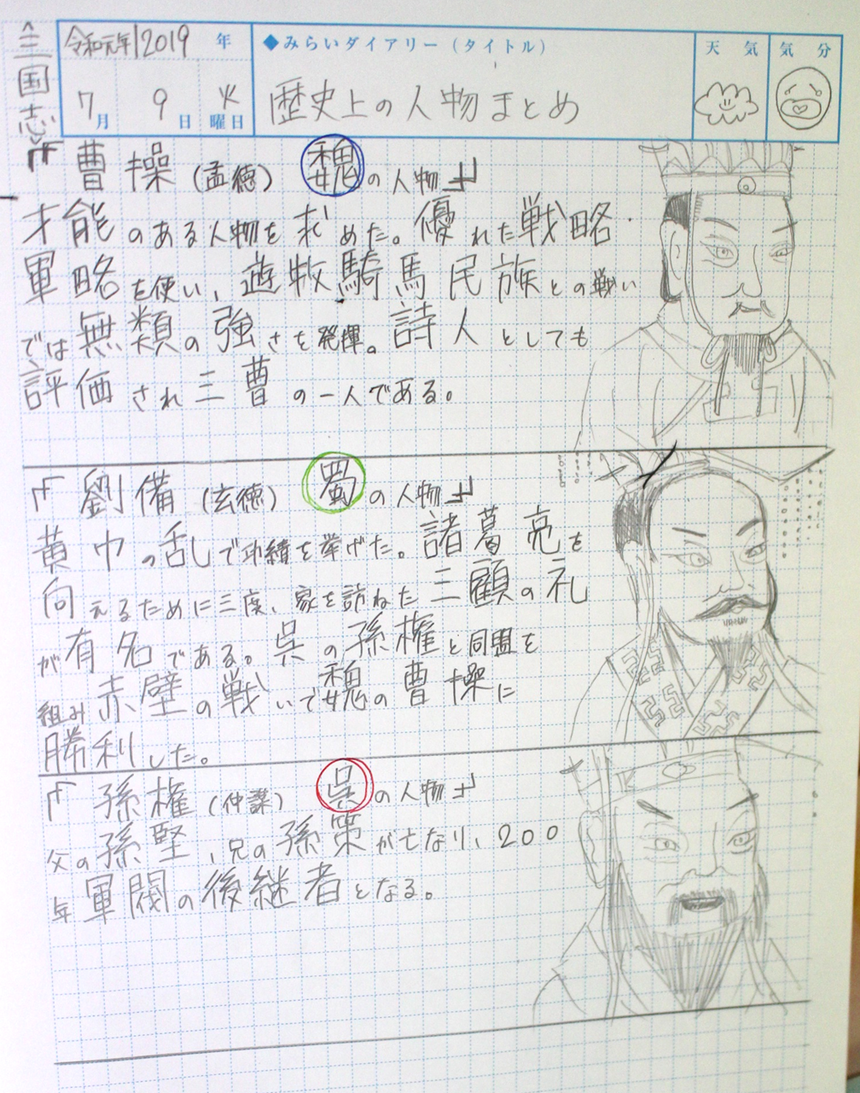 <三国志>
令和元年/2019 年
◆みらいダイアリー(タイトル)
天気
気分
7月 9日 火曜日
歴史上の人物まとめ
『曹操(孟徳) 魏の人物』
才能のある人物を求めた。優れた戦略・
軍略を使い、遊牧騎馬民族との戦い
では無類の強さを発揮。詩人としても
評価され三曹の一人である。
『劉備(玄徳) 蜀の人物』
黄巾の乱で功績を挙げた。諸葛亮を
向えるために三度、家を訪ねた三顧の礼
が有名である。呉の孫権と同盟を
組み赤壁の戦いで魏の曹操に
勝利した。
『孫権(仲謀) 呉の人物』
父の孫堅、兄の孫策が亡なり、200
年軍閥の後継者となる。